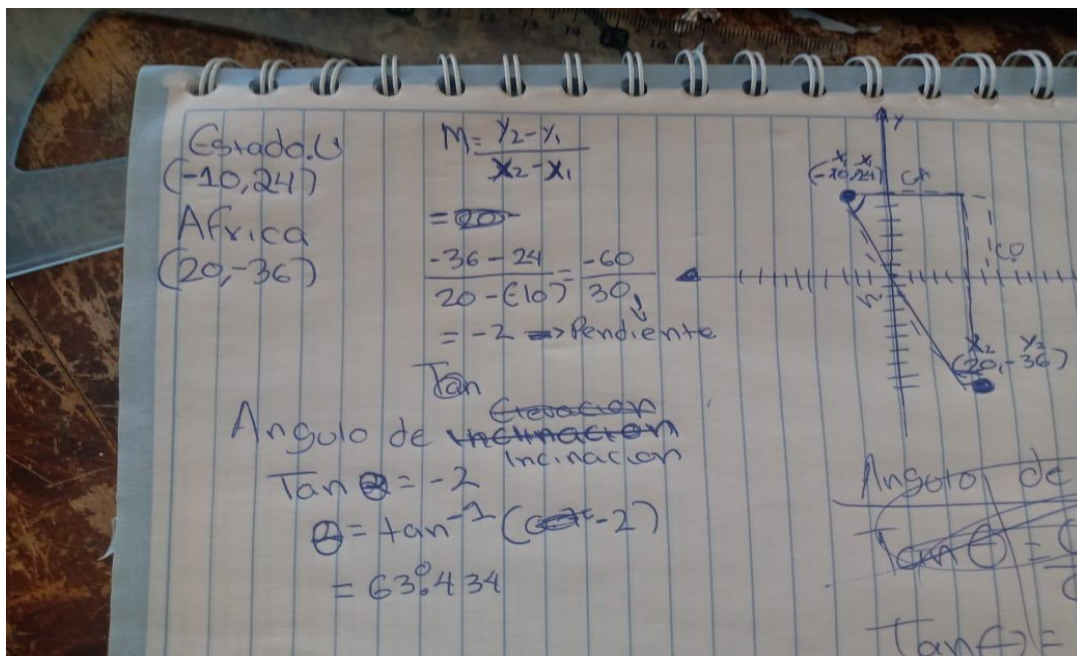 Estado.U
(-10,24)
Africa
(20,-36)
M = Y2-Y1 / X2-X1
= 20
-36-24 / 20-(-10) = -60 / 30
= -2 → Pendiente
Tan
Elevacion
Angulo de Inclinacion
Incinacion
Tan θ = -2
θ = tan⁻¹ (-2)
= 63°.434
Y
X1 Y1
(-20,24)
CA
CO
X2 Y2
(20,-36)
Angulo de
Tan θ =
Tan θ =